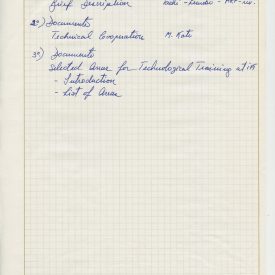 Brief Description
2º) Documents
Technical Cooperation M. Kato
3º) Documents
Selected Areas for Technological Training at
- Introduction
- List of Areas